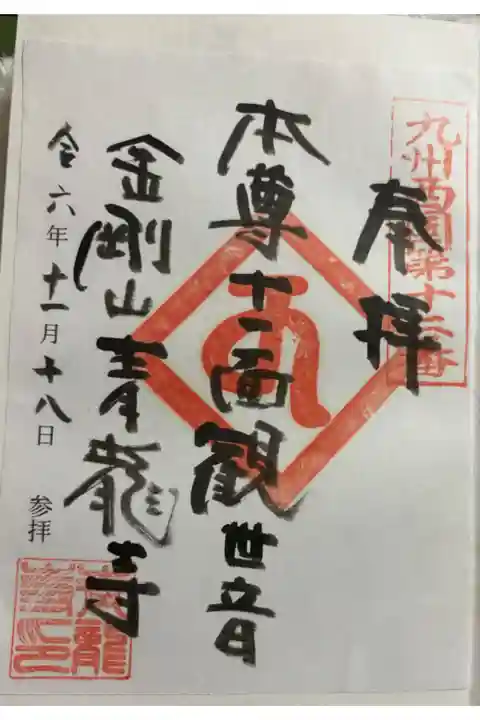 九州西國第十二番
奉拝
本尊十一面観世音
金剛山青龍寺
令六年十一月十八日 参拝
青龍寺印